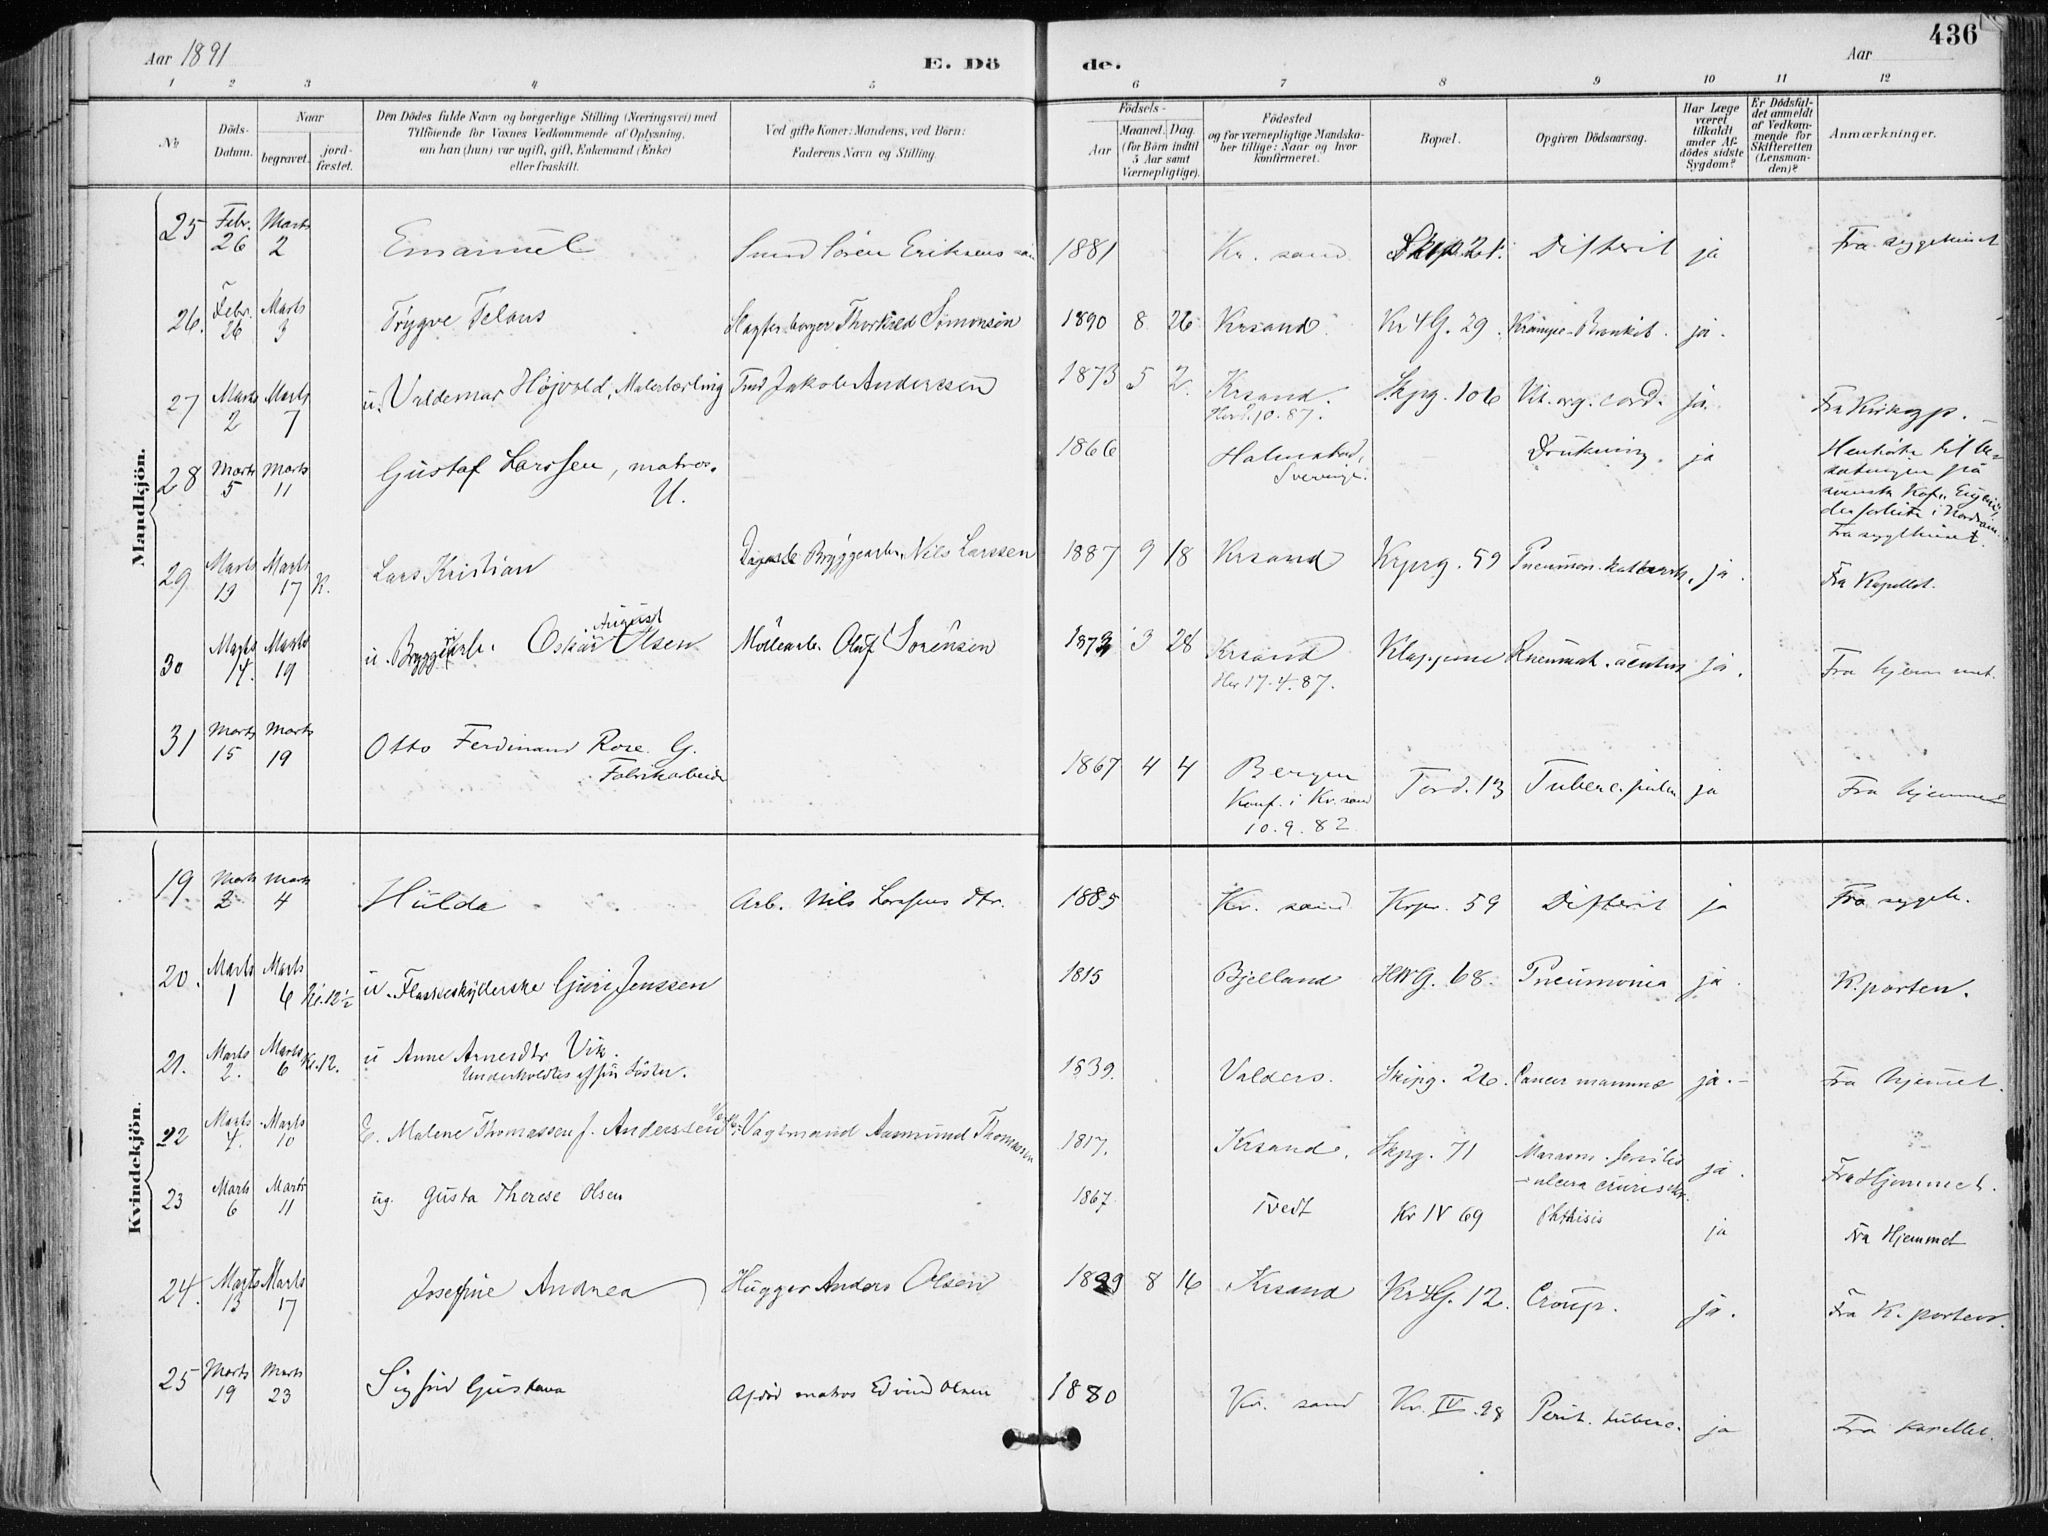 Aar 1891
E. Dö
de.
Aar
436
1 2 3 4 5 6 7 8 9 10 11 12
No
Döds-Datum.
Naar
begravet.
jord-fæstet.
Den Dödes fulde Navn og borgerlige Stilling (Næringsvei) med
Tilföiende for Voxnes Vedkommende af Oplysning,
om han (hun) var ugift, gift, Enkemand (Enke)
eller fraskilt.
Ved gifte Koner: Mandens, ved Börn:
Faderens Navn og Stilling.
Födsels-
Aar
Maaned. Dag.
(for Börn indtil
5 Aar samt
Værnepligtige).
Födested
og for værnepligtige Mandska-
ber tillige: Naar og hvor
konfirmeret.
Bopæl.
Opgiven Dödsaarsag.
Har Læge
været
tilkaldt
under Af-
dödes sidste
Sygdom?
Er Dödsfal-
det anmeldt
af Vedkom-
mende for
Skifteretten
(Lensman-
den)?
Anmærkninger.
Mandkjön.
25 Febr. 26 Marts 2 Emanuel Sund Sören Eriksens 1881 Kr. sand Skip. 21. Difterit ja Fra sygehuset
26. Febr. 26 Marts 3 Trygve Telaus Slagterborger Thorkild Simonsen 1890 8 26 Krsand Kr 4 G. 29 Krampe-Bronkit. ja.
27 Marts 2 Marts 7 u. Valdemar Höjvold, Malerlærling Jakob Anderssen 1873 5 2 Krsand. Skpg. 106 Vit. org. cord. ja. Fra Kirkegp.
10.87.
28 Marts 5 Marts 11 Gustaf Larssen, matros. 1866 Halmstad, Drukning. ja
U.
Sverrige.
svenske
Fra sygehuset.
29 Marts 13 Marts 17 K. Lars Kristian Bryggearb. Nils Larssen 1887 9 18 Krsand Krprg. 59 Pneumon. katarrh. ja. Fra Kapellet.
30 Marts 14. Marts 19 u. Bryggeriarb. Oskar August Olsen Möllearb. Oluf Sörensen 1872 3 28 Krsand Klappene Rheumat. acutus ja. Fra hjemmet.
Her 17.4.87.
31 Marts 15 Marts 19 Otto Ferdinand Rose. G. 1867 4 4 Bergen Tord. 13 Tuberc. pulm ja Fra hjemmet
Fabrikarbeider
Konf. i Kr.sand
10.9.82
Kvindekjön.
19 Marts 2 Marts 4 Hulda Arb. Nils Larssens dtr. 1885 Kr. sand Krpr. 59 Difterit ja Fra sygeh.
20. Marts 1 Marts 6 Kl. 12½ u. Flaskeskyllerske Guri Jenssen 1815 Bjelland HWG. 68. Pneumonia ja. K. porten.
21. Marts 2. Marts 6 Kl. 12. u Anne Arnesdtr Vik. 1839. Valders. Skipg. 26. Cancer mammæ ja.- Fra hjemet.
Underholdtes af sin Söster.
22 Marts 7. Marts 10 E. Malene Thomassen f. Anderssen Vagtmand Aamund Thomassen 1817. Krsand. Skpg. 71 Marasm. senilis ja. Fra Hjemmet.
- ulcera cruris
23 Marts 6 Marts 11 ug. Gusta Therese Olsen 1867 Tvedt Kr IV 69 Phthisis ja Fra Hjemmet
24. Marts 13 Marts 17 Josefine Andrea Hugger Anders Olsen 1889 8 16 Krsand Kr 4G. 12. Croup. ja. Fra K. porten.
25 Marts 19 Marts 23 Sigfrid Gustava Afdöd matros Edvind Olsen 1880 Kr. sand Kr. IV. 98 Perit. tuberc. ja Fra kapellet.